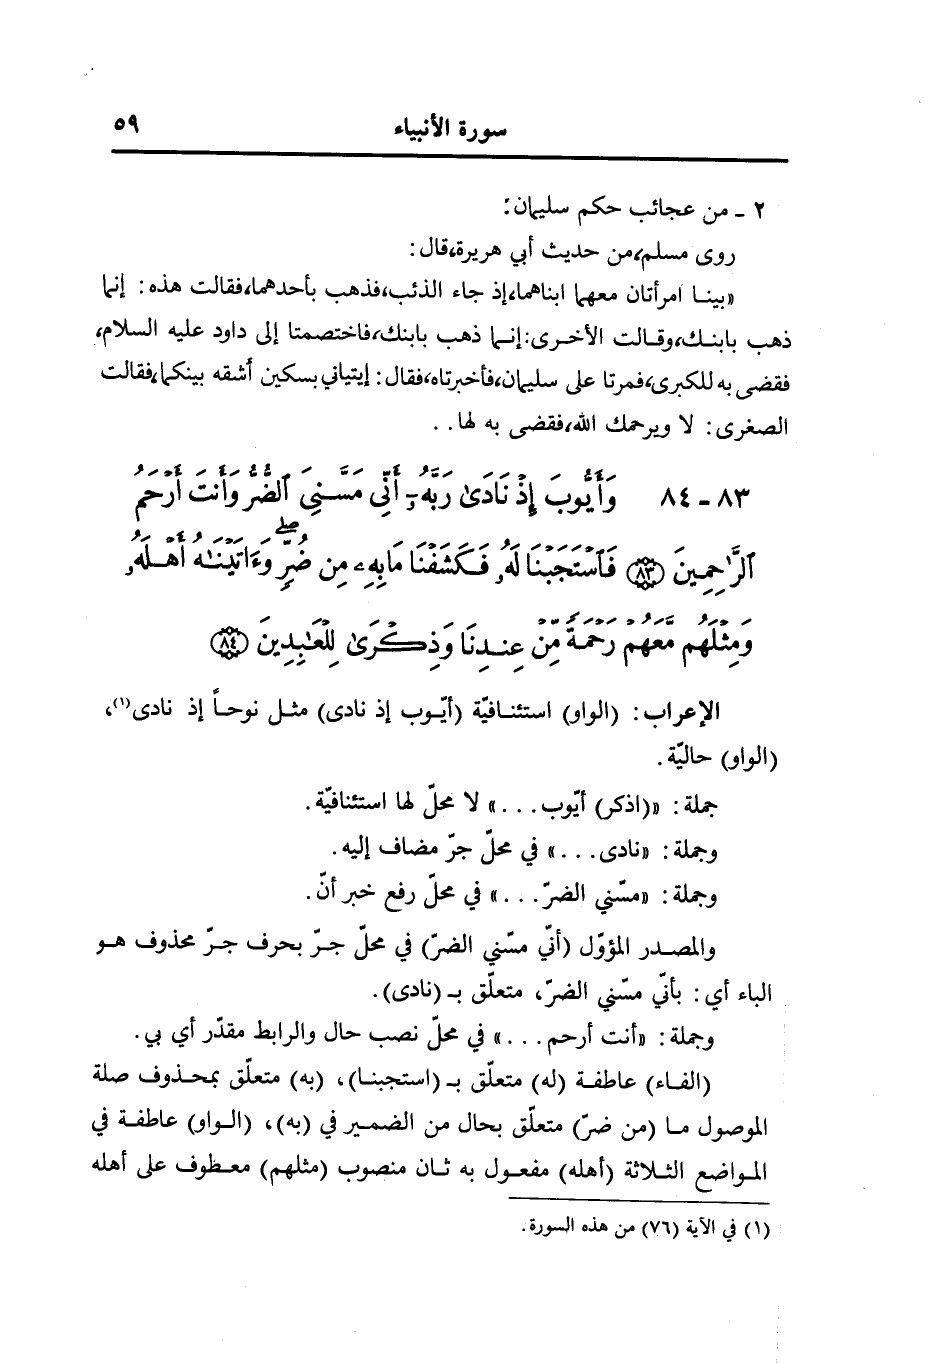 سورة الأنبياء ٥٩
٢ ـ من عجائب حكم سليمان:
روى مسلم، من حديث أبي هريرة، قال:
«بينا امرأتان معهما ابناهما، إذ جاء الذئب، فذهب بأحدهما، فقالت هذه: إنما
ذهب بابنك، وقالت الأخرى: إنما ذهب بابنك، فاختصمتا إلى داود عليه السلام،
فقضى به للكبرى، فمرتا على سليمان، فأخبرتاه، فقال: إيتياني بسكين أشقه بينكما، فقالت
الصغرى: لا ويرحمك الله، فقضى به لها..
٨٣ ـ ٨٤ وَأَيُّوبَ إِذْ نَادَىٰ رَبَّهُۥٓ أَنِّي مَسَّنِيَ ٱلضُّرُّ وَأَنتَ أَرْحَمُ
ٱلرَّٰحِمِينَ ﴿٨٣﴾ فَٱسْتَجَبْنَا لَهُۥ فَكَشَفْنَا مَا بِهِۦ مِن ضُرٍّۖ وَءَاتَيْنَٰهُ أَهْلَهُۥ
وَمِثْلَهُم مَّعَهُمْ رَحْمَةً مِّنْ عِندِنَا وَذِكْرَىٰ لِلْعَٰبِدِينَ ﴿٨٤﴾
الإعراب: (الواو) استئنافيّة (أيّوب إذ نادى) مثل نوحاً إذ نادى(١)،
(الواو) حاليّة.
جملة: «(اذكر) أيّوب...» لا محلّ لها استئنافيّة.
وجملة: «نادى...» في محلّ جرّ مضاف إليه.
وجملة: «مسّني الضرّ...» في محلّ رفع خبر أنّ.
والمصدر المؤوّل (أنّي مسّني الضرّ) في محلّ جرّ بحرف جرّ محذوف هو
الباء أي: بأنّي مسّني الضرّ، متعلّق بـ (نادى).
وجملة: «أنت أرحم...» في محلّ نصب حال والرابط مقدّر أي بي.
(الفاء) عاطفة (له) متعلّق بـ (استجبنا)، (به) متعلّق بمحذوف صلة
الموصول ما (من ضرّ) متعلّق بحال من الضمير في (به)، (الواو) عاطفة في
المواضع الثلاثة (أهله) مفعول به ثان منصوب (مثلهم) معطوف على أهله
(١) في الآية (٧٦) من هذه السورة.